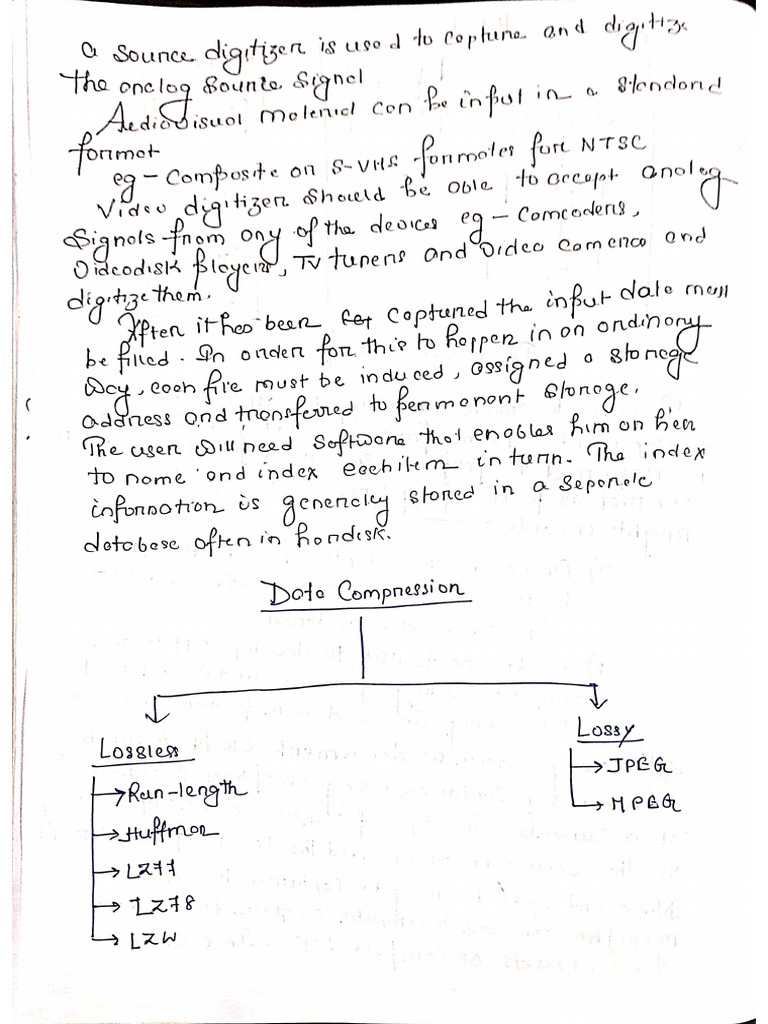 a source digitizer is used to capture and digitize
the analog source signal
Audiovisual material can be input in a standard
format
eg - Composite or S-VHS formates for NTSC
Video digitizer should be able to accept analog
Signals from any of the devices eg - Camcoders,
Videodisk players, TV tuners and video camerca and
digitize them.
After it has been captured the input data must
be filled. In order for this to happen in an ordinary
way, each file must be induced, assigned a storage
address and transferred to permanant storage.
The user will need software that enables him or her
to name and index each item in turn. The index
information is generally stored in a seperate
database often in hardisk.
Data Compression
Lossless
Lossy
Run-length
JPEG
Huffman
MPEG
LZ77
LZ78
LZW